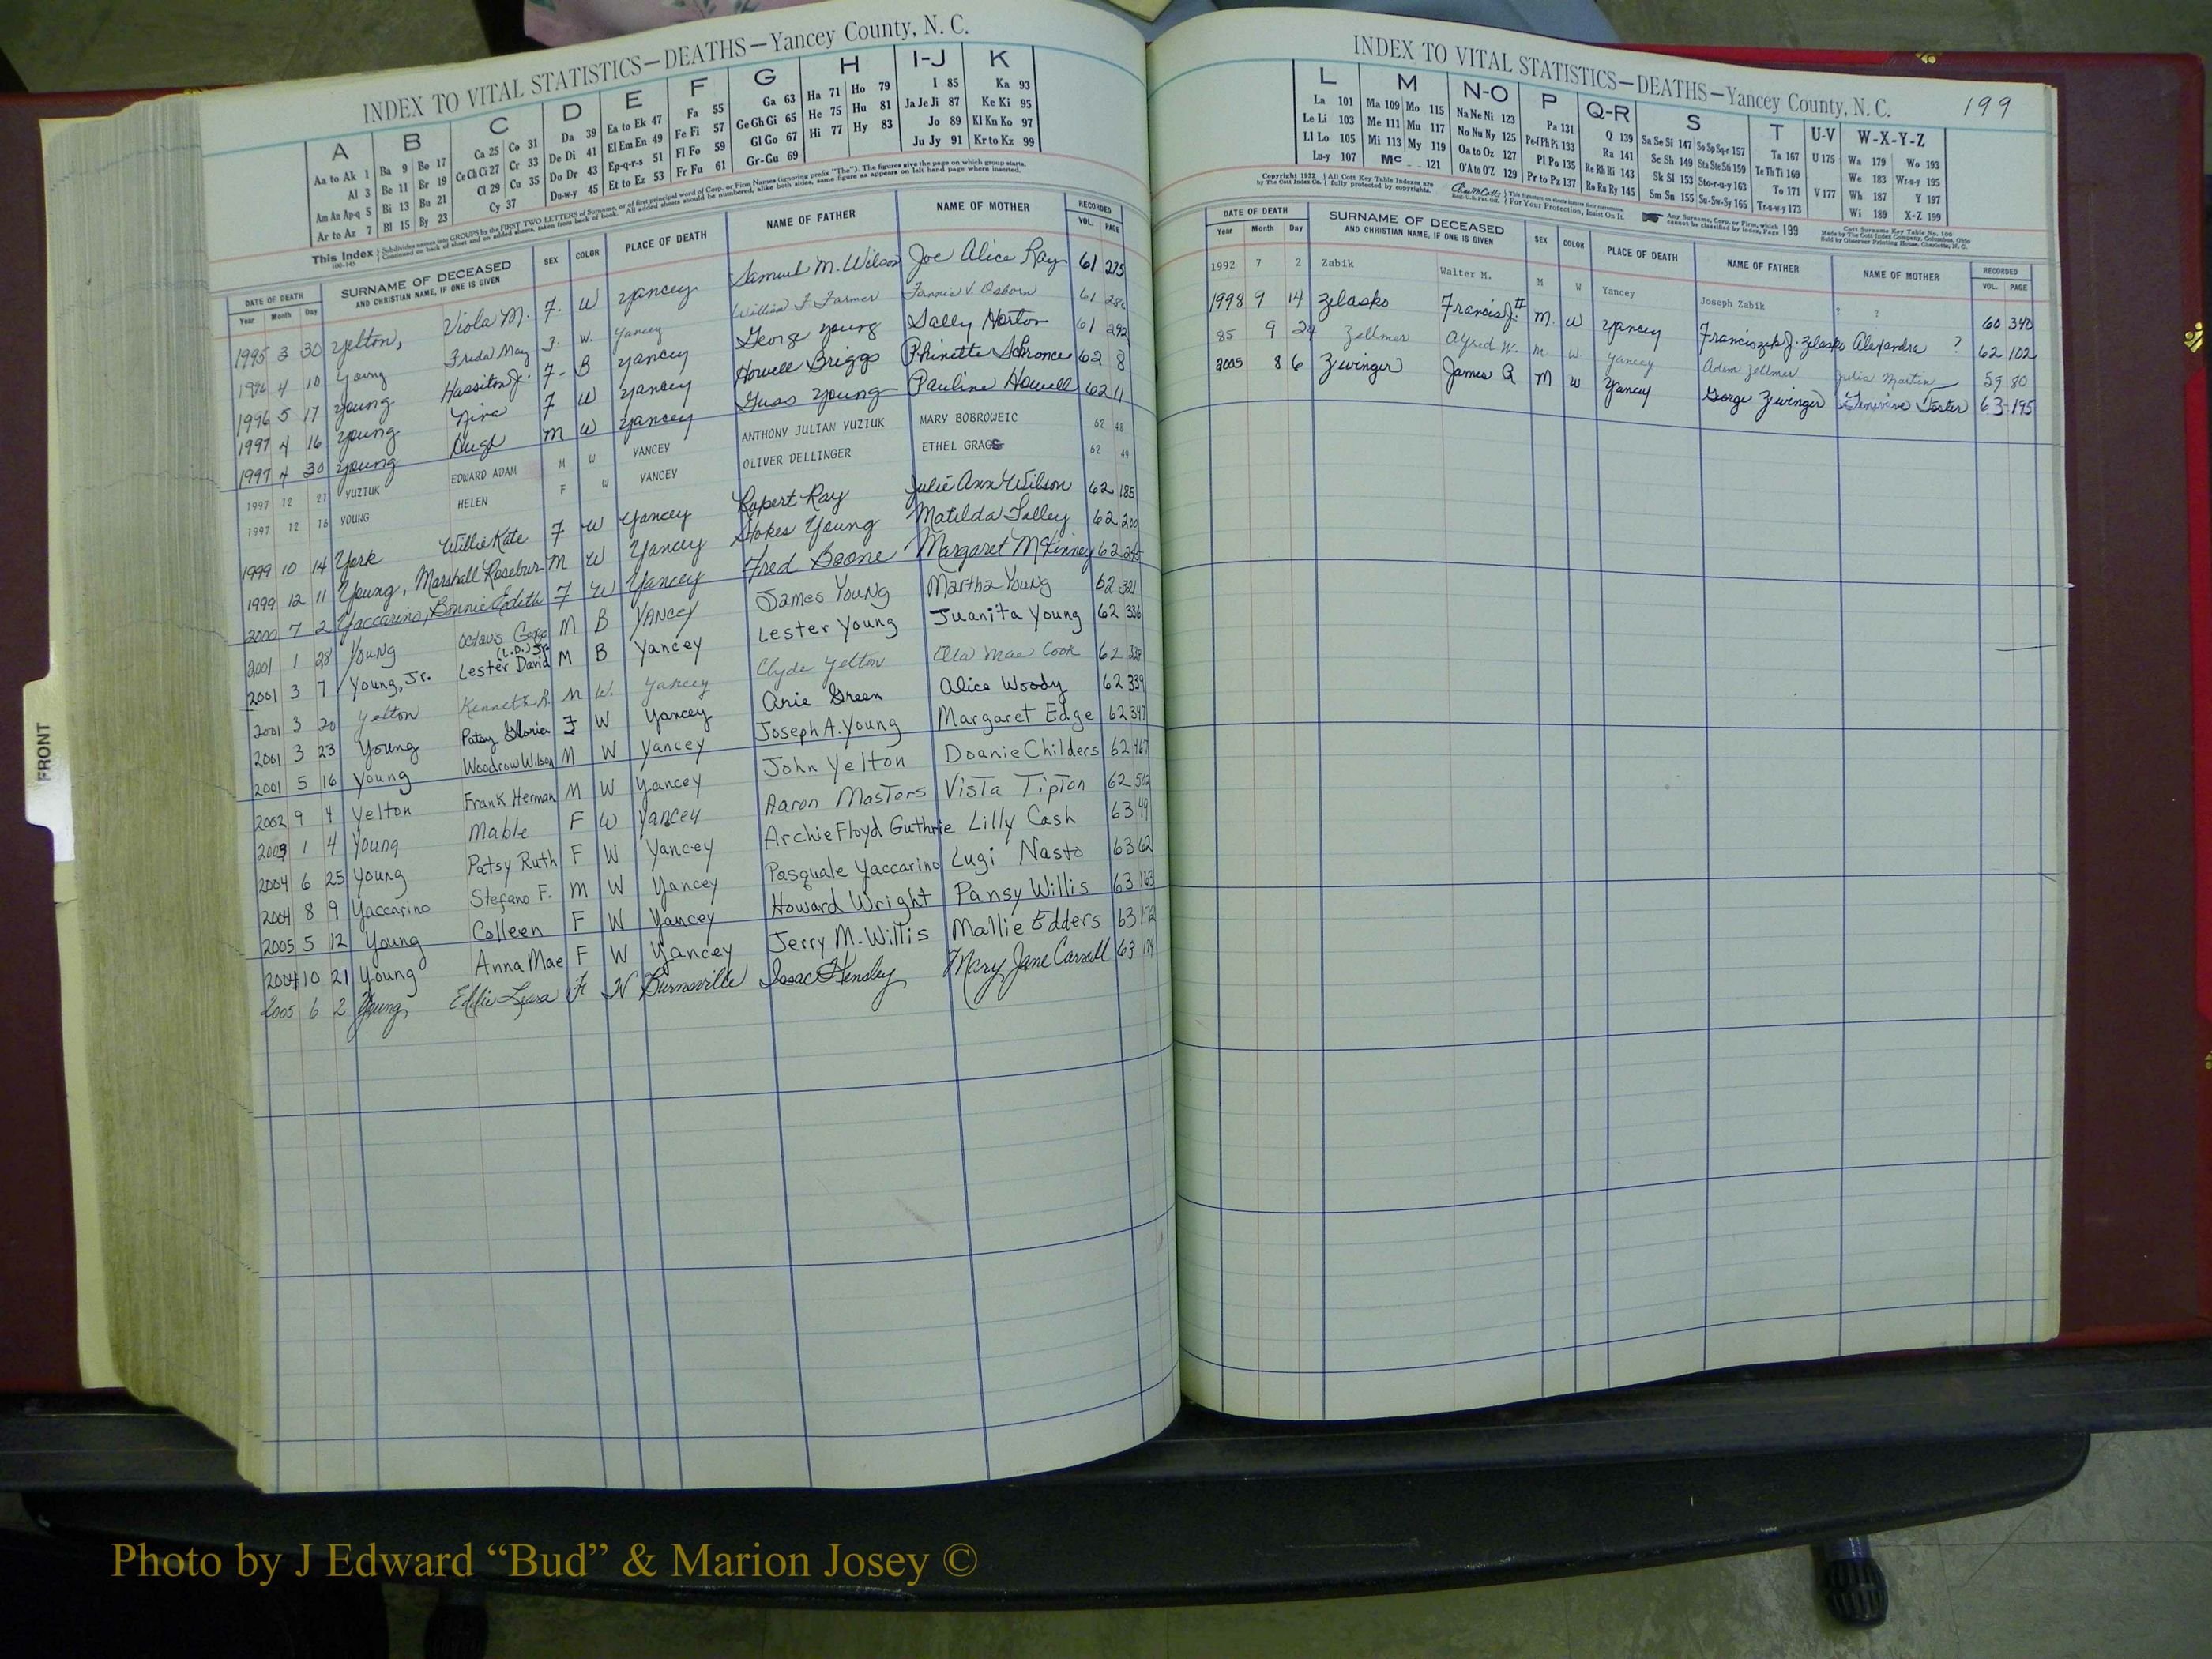 INDEX TO VITAL STATISTICS—DEATHS—Yancey County, N. C.
A B C D E F G H I-J K
Aa to Ak 1 Ba 9 Bo 17 Ca 25 Co 31 Da 39 Ea to Ek 47 Fa 55 Ga 63 Ha 71 Ho 79 I 85 Ka 93
Al 3 Be 11 Br 19 Ce Ch Ci 27 Cr 33 De Di 41 El Em En 49 Fe Fi 57 Ge Gh Gi 65 He 75 Hu 81 Ja Je Ji 87 Ke Ki 95
Am An Ap-q 5 Bi 13 Bu 21 Cl 29 Cu 35 Do Dr 43 Ep-q-r-s 51 Fl Fo 59 Gl Go 67 Hi 77 Hy 83 Jo 89 Kl Kn Ko 97
Ar to Az 7 Bl 15 By 23 Cy 37 Du-w-y 45 Et to Ez 53 Fr Fu 61 Gr-Gu 69 Ju Jy 91 Kr to Kz 99
This Index Subdivides names into GROUPS by the FIRST TWO LETTERS of Surname, or of first principal word of Corp. or Firm Names (ignoring prefix "The"). The figures give the page on which group starts.
Continued on back of sheet and on added sheets, taken from back of book. All added sheets should be numbered, alike both sides, same figure as appears on left hand page where inserted.
DATE OF DEATH SURNAME OF DECEASED SEX COLOR PLACE OF DEATH NAME OF FATHER NAME OF MOTHER RECORDED
Year Month Day AND CHRISTIAN NAME, IF ONE IS GIVEN VOL. PAGE
1995 3 30 Yelton, Viola M. F. W Yancey Samuel M. Wilson Joe Alice Ray 61 275
1996 4 10 Young Freda May F. W. Yancey William F. Farmer Fannie V. Osborn 61
1996 5 17 Young F- B Yancey George Young Sally Horton 61 292
1997 4 16 Young Nina F W Yancey Howell Briggs Phinette Schronce 62 8
1997 4 30 Young M W Yancey Guss Young Pauline Howell 62 11
1997 12 21 YUZIUK EDWARD ADAM M W YANCEY ANTHONY JULIAN YUZIUK MARY BOBROWEIC 62 48
1997 12 16 YOUNG HELEN F W YANCEY OLIVER DELLINGER ETHEL GRAGG 62 49
1999 10 14 York Willie Kate F W Yancey Rupert Ray Julie Ann Wilson 62 185
1999 12 11 Young, Marshall Rosebur M W Yancey Stokes Young Matilda 62 200
2000 7 2 Yaccarino, Bonnie Edith F W Yancey Fred Boone Margaret McKinney 62 245
2001 1 28 Young Octavis George M B Yancey James Young Martha Young 62 321
2001 3 7 Young, Jr. Lester David (L.D.) Jr. M B Yancey Lester Young Juanita Young 62 336
2001 3 20 Yelton Kenneth R. M W. Yancey Clyde Yelton Ola Mae Cook 62 338
2001 3 23 Young Patsy Gloria F W Yancey Arie Green Alice Woody 62 339
2001 5 16 Young Woodrow Wilson M W Yancey Joseph A. Young Margaret Edge 62 347
2002 9 4 Yelton Frank Herman M W Yancey John Yelton Doanie Childers 62 467
2003 1 4 Young Mable F W Yancey Aaron Masters Vista Tipton 62 502
2004 6 25 Young Patsy Ruth F W Yancey Archie Floyd Guthrie Lilly Cash 63 49
2004 8 9 Yaccarino Stefano F. M W Yancey Pasquale Yaccarino Lugi Nasto 63 62
2005 5 12 Young Colleen F W Yancey Howard Wright Pansy Willis 63 163
2004 10 21 Young Anna Mae F W Yancey Jerry M. Willis Mallie Edders 63 172
2005 6 2 Young F W Burnsville Isaac Hensley Mary Jane 63 174
FRONT
INDEX TO VITAL STATISTICS—DEATHS—Yancey County, N. C. 199
L M N-O P Q-R S T U-V W-X-Y-Z
La 101 Ma 109 Mo 115 Na Ne Ni 123 Pa 131 Q 139 Sa Se Si 147 So Sp Sq-r 157 Ta 167 U 175 Wa 179 Wo 193
Le Li 103 Me 111 Mu 117 No Nu Ny 125 Pe-f Ph Pi 133 Ra 141 Sc Sh 149 Sta Ste Sti 159 Te Th Ti 169 We 183 Wr-u-y 195
Ll Lo 105 Mi 113 My 119 Oa to Oz 127 Pl Po 135 Re Rh Ri 143 Sk Sl 153 Sto-r-u-y 163 To 171 V 177 Wh 187 Y 197
Lu-y 107 Mc 121 O'A to O'Z 129 Pr to Pz 137 Ro Ru Ry 145 Sm Sn 155 Su-Sw-Sy 165 Tr-u-w-y 173 Wi 189 X-Z 199
Copyright 1932 All Cott Key Table Indexes are
by The Cott Index Co. fully protected by copyrights. For Your Protection, Insist On It.
Any Surname, Corp. or Firm, which
cannot be classified by Index, Page 199
Cott Surname Key Table No. 100
Made by The Cott Index Company, Columbus, Ohio
Sold by Observer Printing House, Charlotte, N. C.
DATE OF DEATH SURNAME OF DECEASED SEX COLOR PLACE OF DEATH NAME OF FATHER NAME OF MOTHER RECORDED
Year Month Day AND CHRISTIAN NAME, IF ONE IS GIVEN VOL. PAGE
1992 7 2 Zabik Walter M. M W Yancey Joseph Zabik ? ? 60 340
1998 9 14 Zelasko Francis J. II M. W Yancey Franciszek J. Zelasko Alexandra ? 62 102
85 9 24 Zellmer Alfred W. M. W Yancey Adam Zellmer Julia Martin 59 80
2005 8 6 Zwinger James R M W Yancey George Zwinger Genevieve Foster 63 195
Photo by J Edward “Bud” & Marion Josey ©